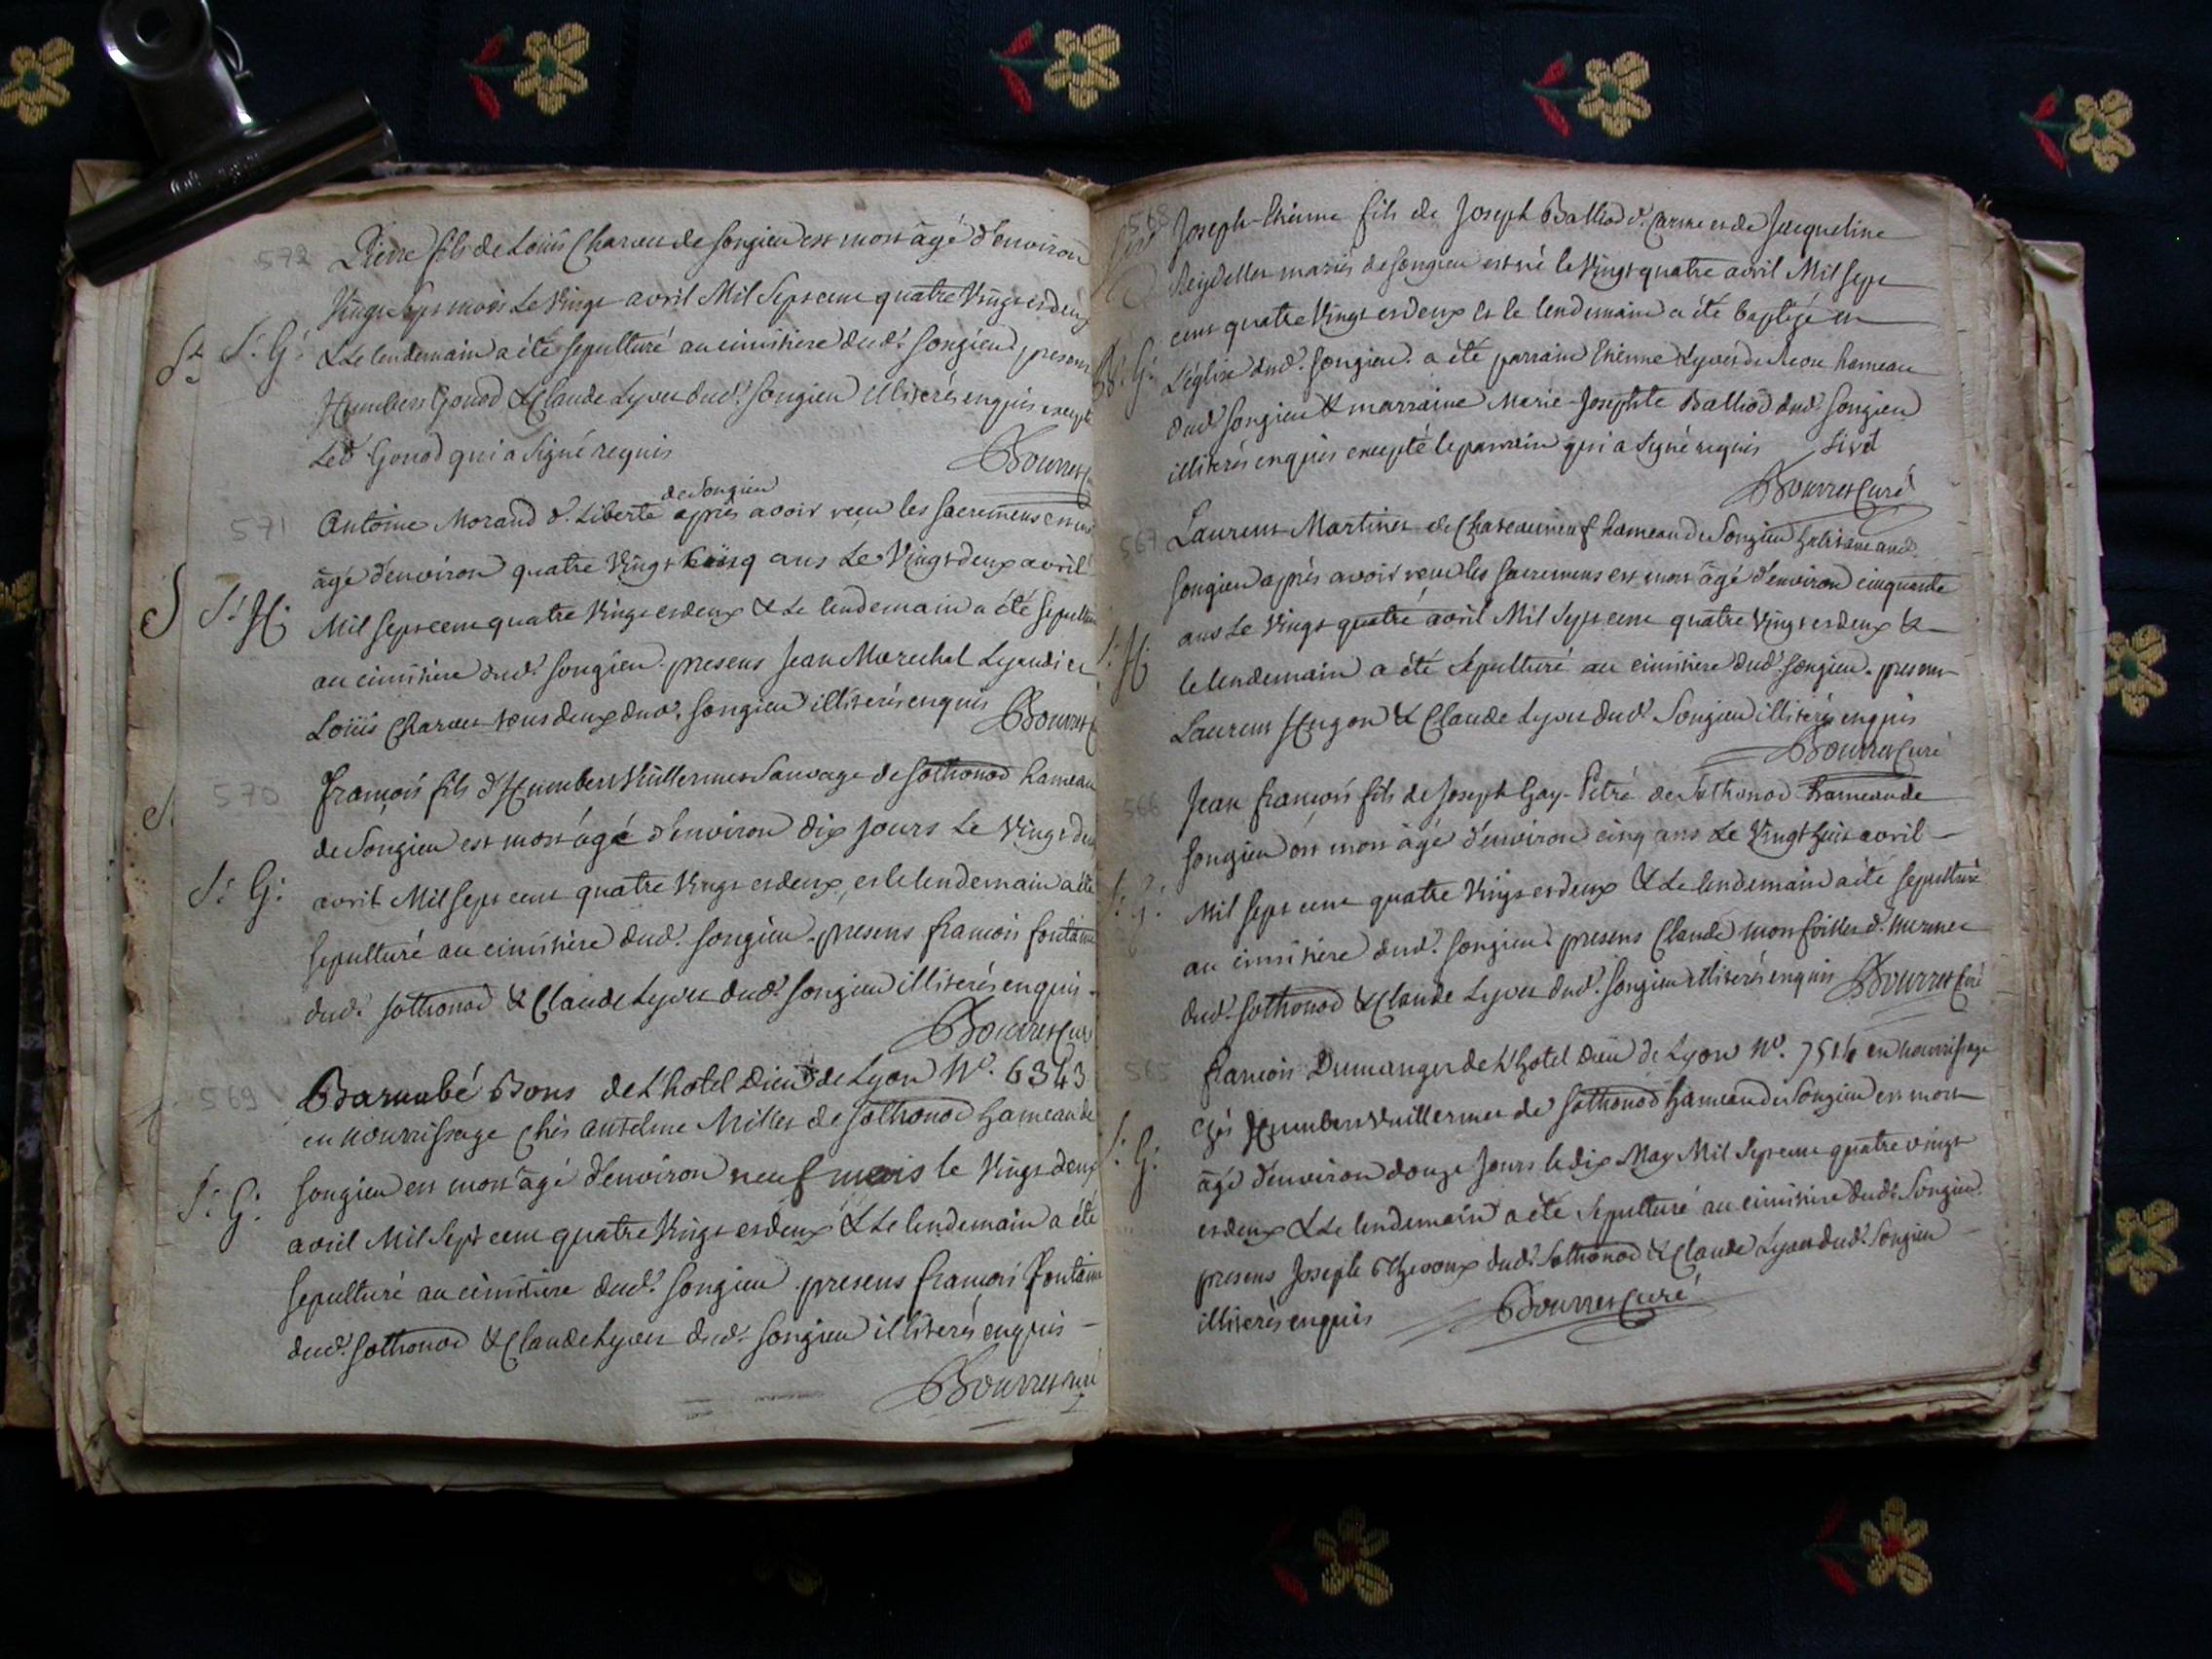 572
Pierre fils de Loüis Charvet de Songieu est mort âgé d'environ
Vingt Sept mois Le Vingt avril Mil Sept cent quatre Vingt et deux
St S: G: & Le lendemain a été sepulturé au cimitiere dud. Songieu, presens
Humbert Gonod & Claude Lyvet dud. Songieu illiterés enquis excepté
Led. Gonod qui a signé requis
Bourret C
571
de Songieu
Antoine Morand d. Liberté après avoir reçu les sacremens est mort
âgé d'environ quatre Vingt Cinq ans Le Vingt deux avril
S S: H: Mil sept cent quatre Vingt et deux & Le lendemain a été sepulturé
au cimitiere dud. Songieu. presens Jean Marechal Lyaudi et
Loüis Charvet tous deux dud. Songieu illiterés enquis Bourret C
570
François fils d'Humbert Vuillermet Sauvage de Sothonod hameau
S.
de Songieu est mort âgé d'environ dix jours Le Vingt deux
S: G: avril Mil sept cent quatre Vingt et deux, et le lendemain a été
sepulturé au cimitiere dud. Songieu. presens françois fontaine
dud. Sothonod & Claude Lyvet dud. Songieu illiterés enquis -
Bourret Curé
569
Barnabé Bons de L'hotel Dieu de Lyon N°. 6343
en nourrissage chés antelme Millet de Sothonod hameau de
S: G: Songieu est mort âgé d'environ neuf mois le Vingt deux
avril Mil Sept cent quatre Vingt et deux & Le lendemain a été
sepulturé au cimitiere dud. Songieu. presens françois fontaine
dud. Sothonod & Claude Lyvet dud. Songieu illiterés enquis -
Bourret curé
568
Joseph-Etienne fils de Joseph Balliod d. Carme et de Jacqueline
Reydellet mariés de Songieu est né le Vingt quatre avril Mil sept
cent quatre Vingt et deux et le lendemain a été baptisé en
B: G: L'église dud. Songieu. a été parrain Etienne Lyvet de hameau
dud. Songieu & marraine Marie-Josephte Balliod dud. Songieu
illiterés enquis excepté le parrain qui a signé requis Livet
Bourret Curé
567
Laurent Martinet de Chateauneuf hameau de Songieu
Songieu après avoir reçu les sacremens est mort âgé d'environ cinquante
ans Le Vingt quatre avril Mil Sept cent quatre Vingt et deux &
S: H: le lendemain a été sepulturé au cimitiere dud. Songieu. presens
Laurent Hugon & Claude Lyvet dud. Songieu illiterés enquis
Bourret Curé
566
Jean françois fils de Joseph Gay-Pétré de Sothonod hameau de
Songieu est mort âgé d'environ cinq ans Le Vingt huit avril -
S: G: Mil sept cent quatre Vingt et deux & Le lendemain a été sepulturé
au cimitiere dud. Songieu. presens Claude monfoillet d.
dud. Sothonod & Claude Lyvet dud. Songieu illiterés enquis Bourret Curé
565
françois Dumanger de L'hotel Dieu de Lyon N°. en nourrissage
chés Humbert Vuillermet de Sothonod hameau de Songieu est mort
S: G: âgé d'environ douze Jours le dix May Mil Sept cent quatre vingt
et deux & Le lendemain a été sepulturé au cimitiere dud. Songieu.
presens Joseph Thevoux dud. Sothonod & Claude Lyvet dud. Songieu
illiterés enquis Bourret Curé